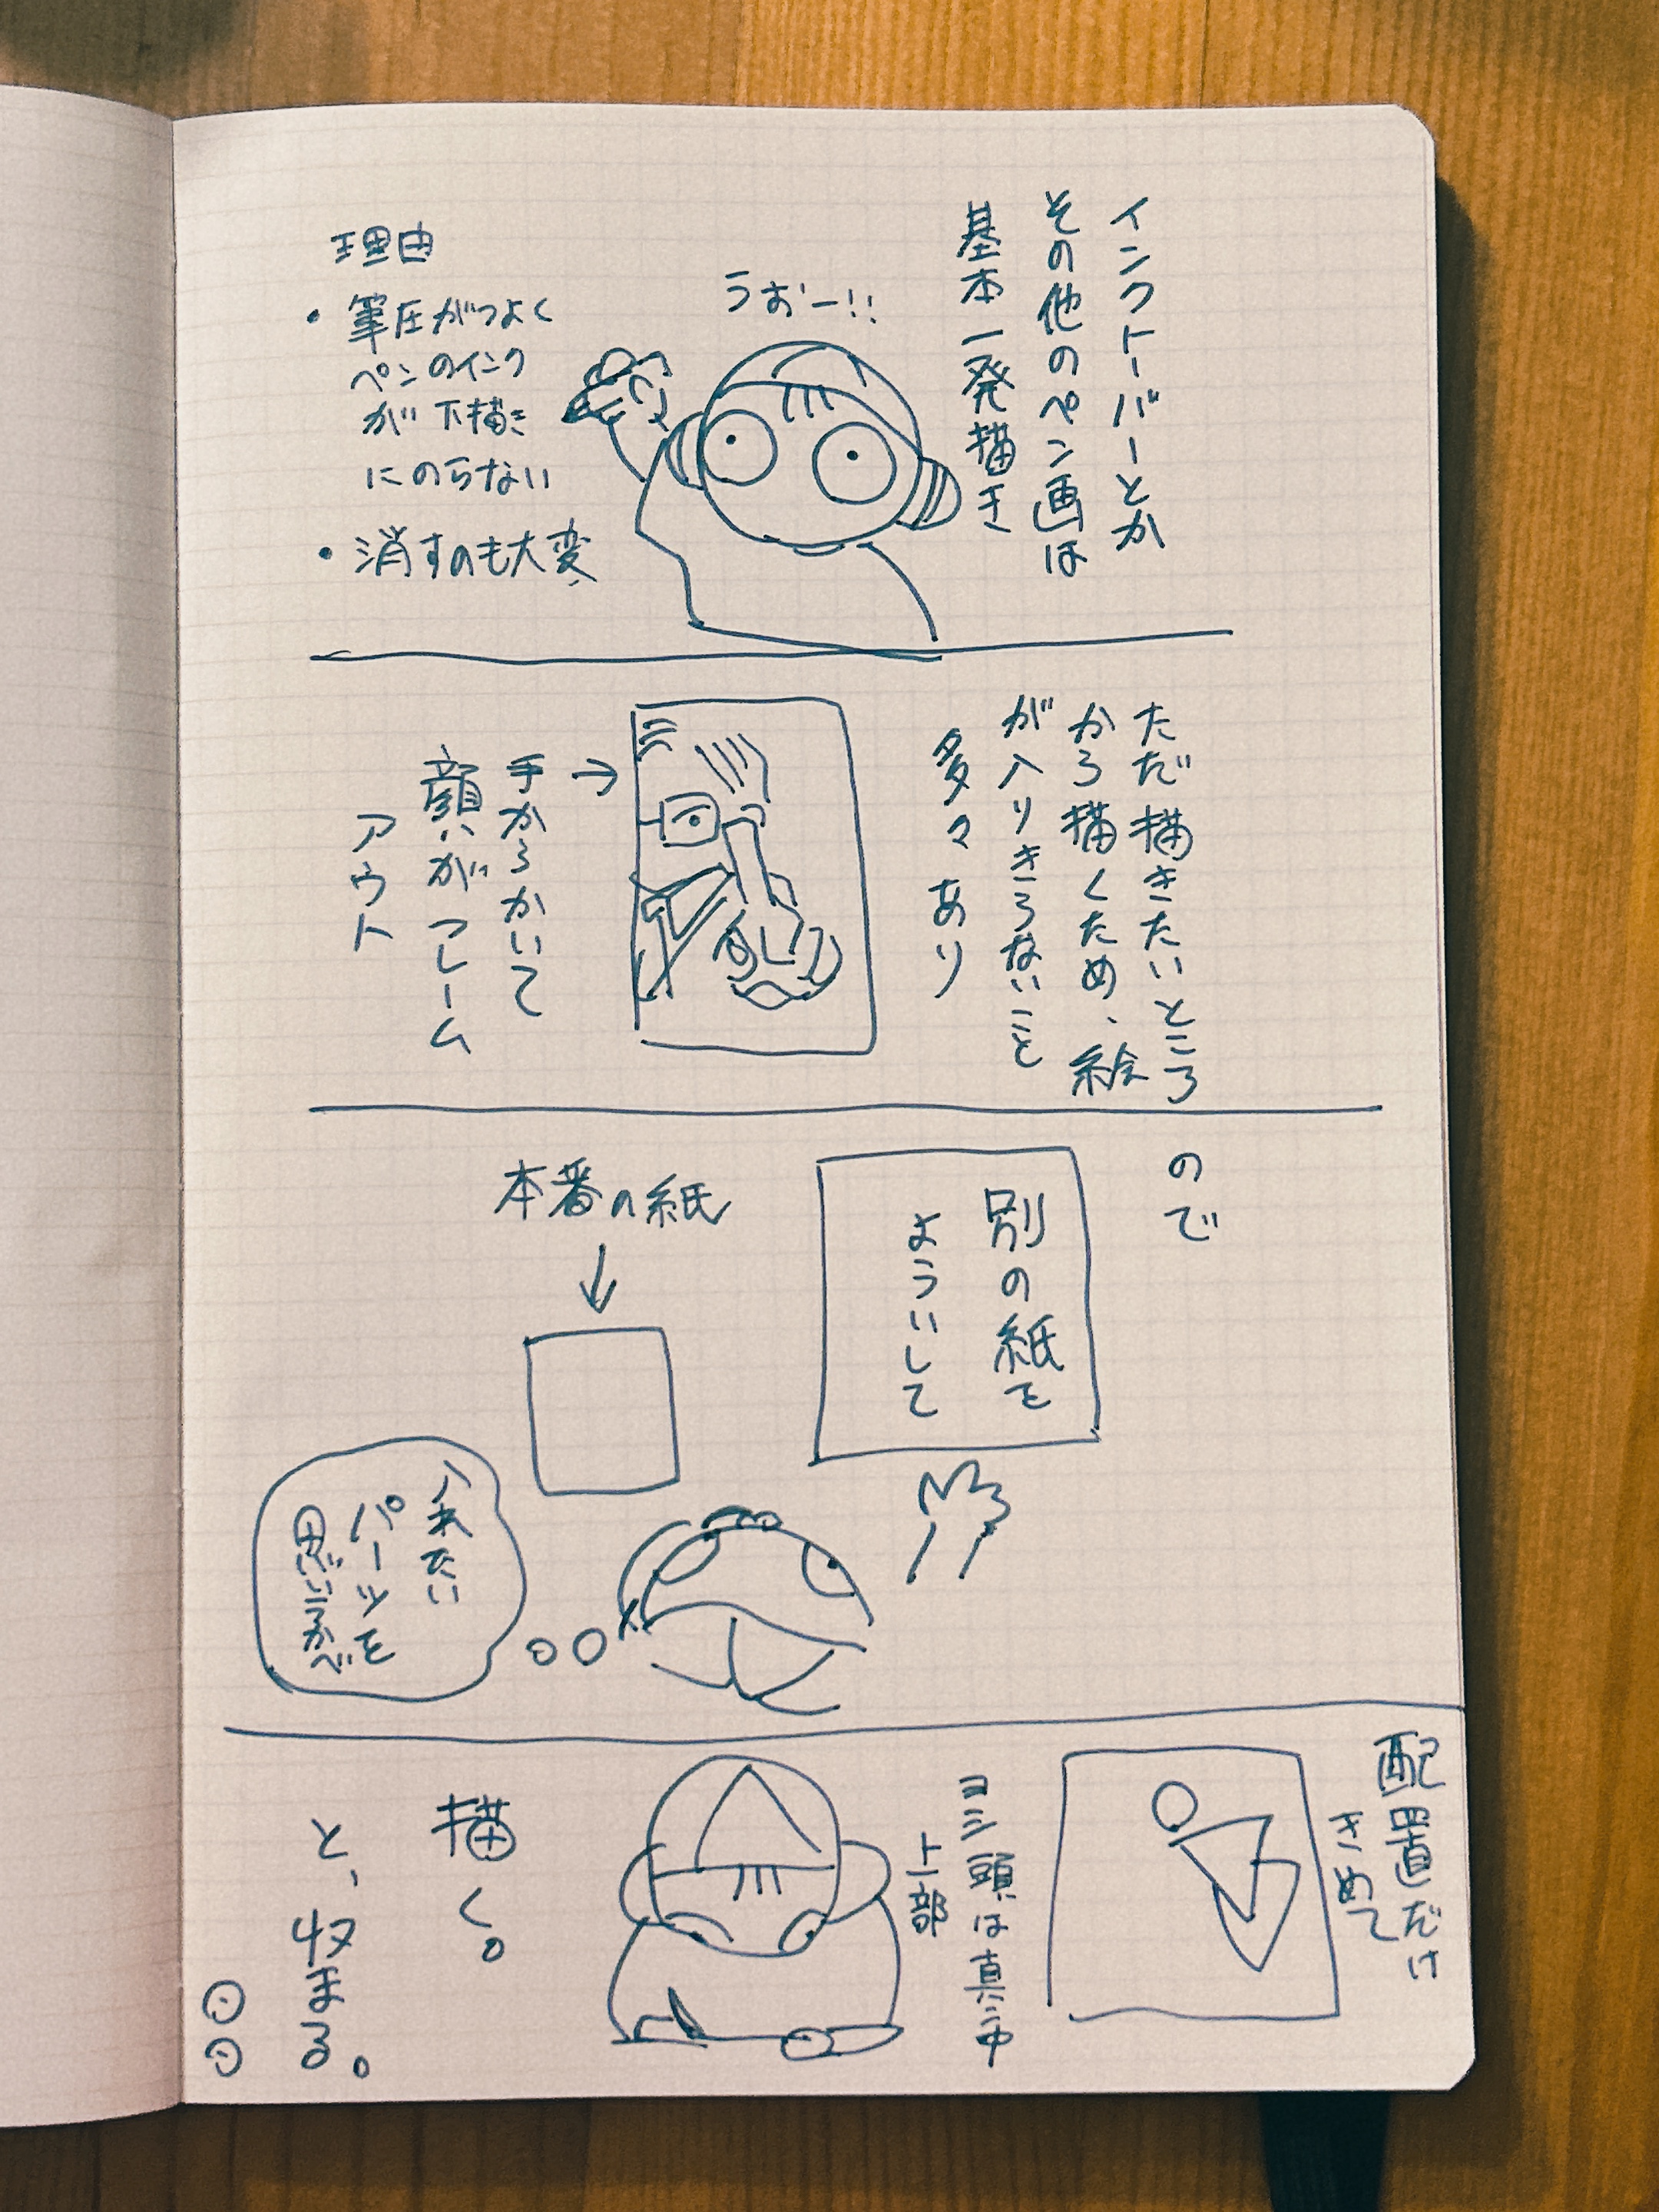 インクトーバーとか
その他のペン画は
基本一発描き
うおー!!
理由
・筆圧がつよく
ペンのインク
が下描き
にのらない
・消すのも大変
ただ描きたいところ
から描くため、絵
が入りきらないこと
多々あり
→
手からかいて
顔がフレーム
アウト
ので
別の紙を
よういして
本番の紙
↓
入れたい
パーツを
思いうかべ
配置だけ
きめて
ヨシ頭は真ン中
上部
描く。
と、収まる。